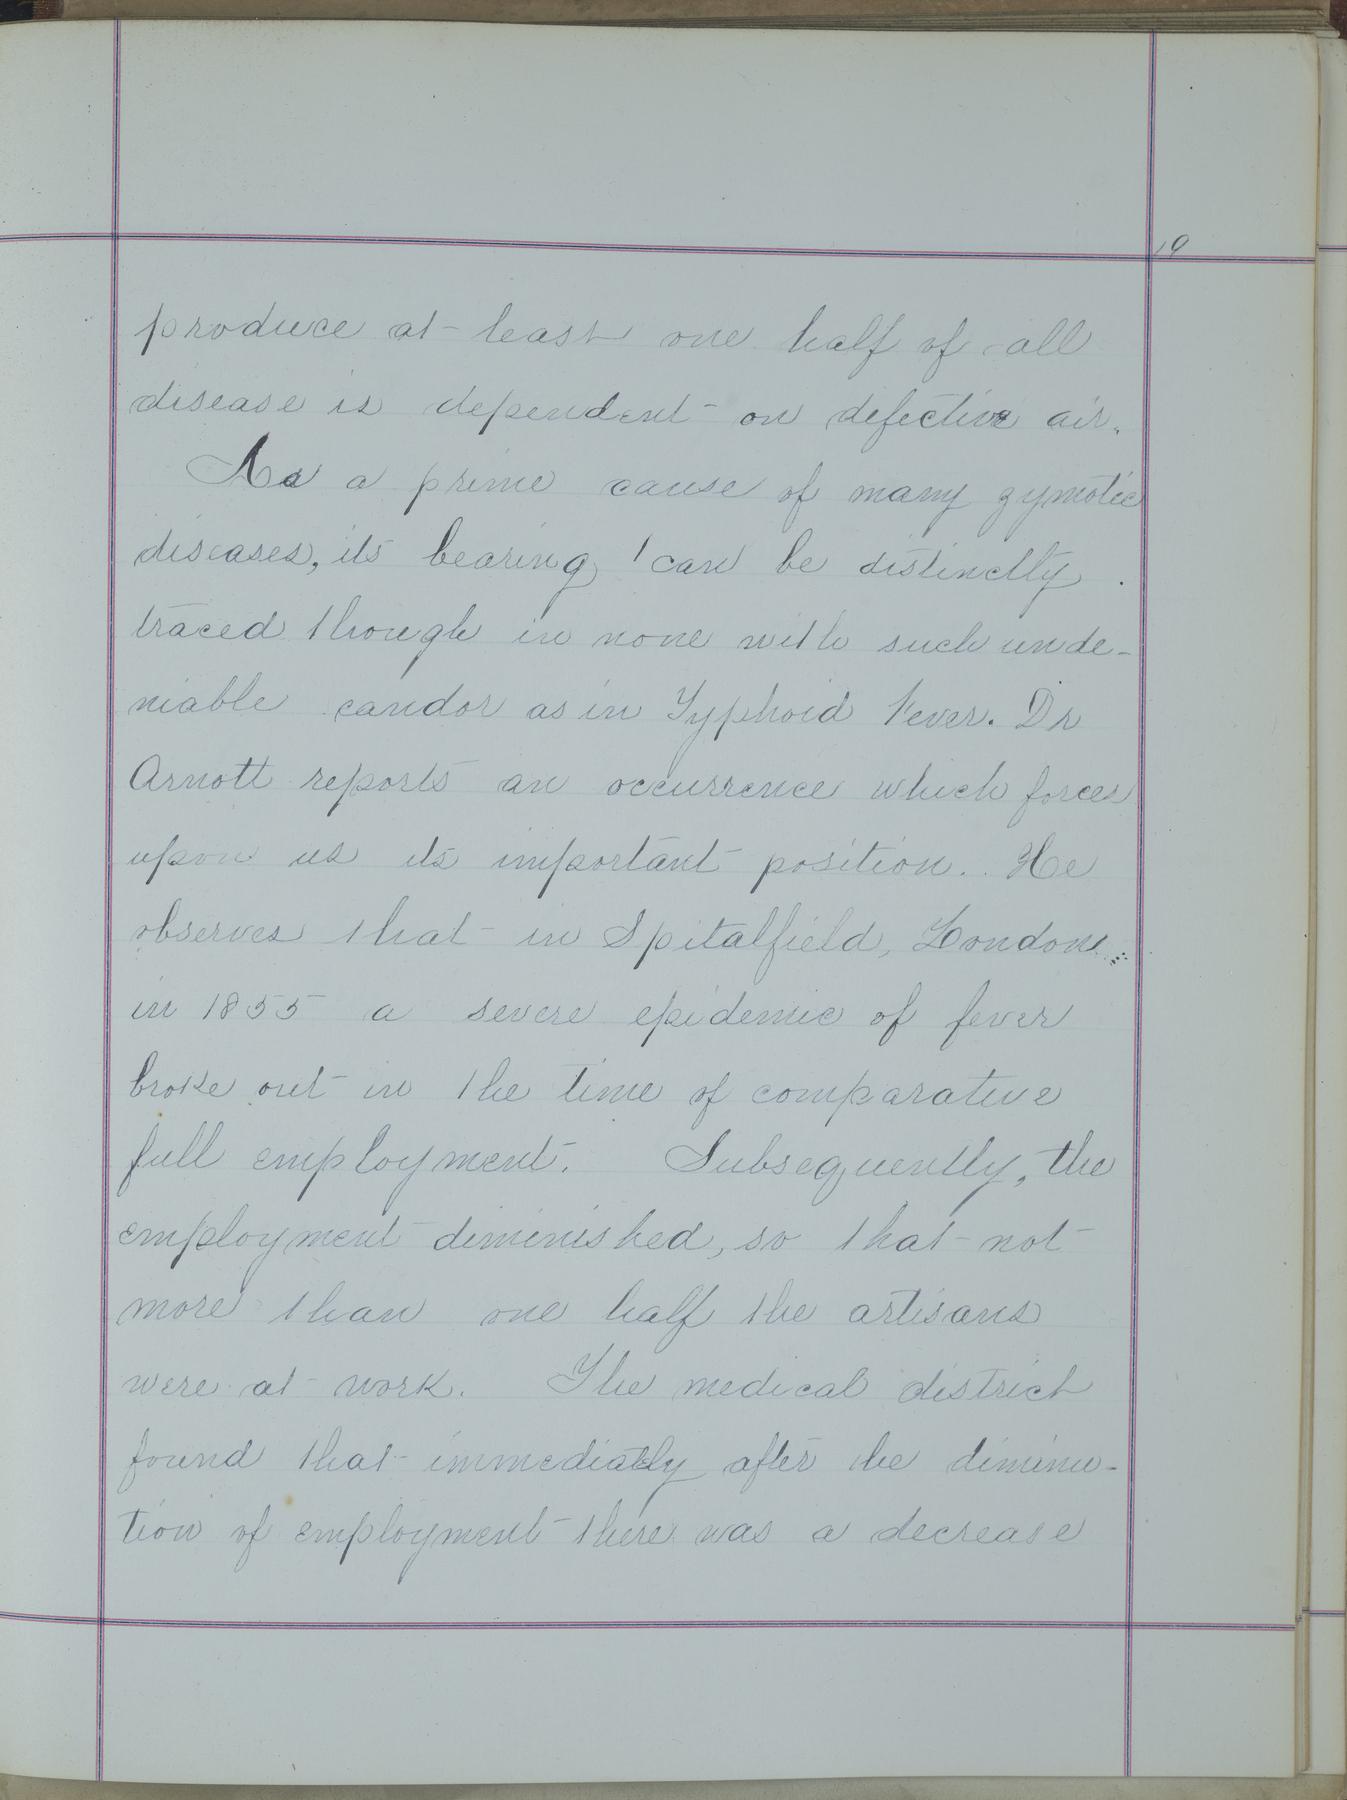 19
produce at least one half of all
disease is dependent on defective air.
As a prime cause of many zymotic
diseases, its bearing can be distinctly
traced though in none with such unde-
niable candor as in Typhoid Fever. Dr
Arnott reports an occurrence which forces
upon us its important position. He
observes that in Spitalfield, London
in 1855 a severe epidemic of fever
broke out in the time of comparative
full employment. Subsequently, the
employment diminished, so that not
more than one half the artisans
were at work. The medical district
found that immediatly after the diminu-
tion of employment there was a decrease